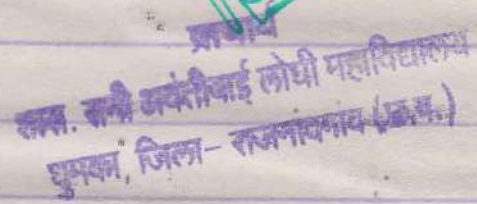 प्राचार्य
शास. रानी अवंतीबाई लोधी महाविद्यालय
घुमका, जिला– राजनांदगांव (छ.ग.)